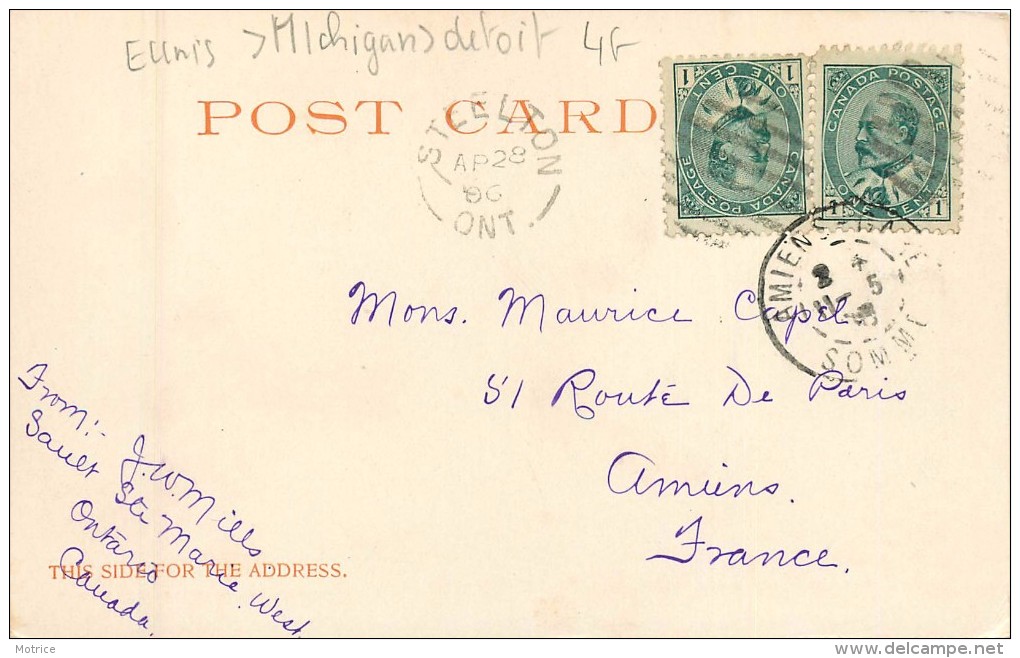 EUnis >MIchigan>detoit 4F
POST CARD
STEELTON
AP 28
06
ONT.
1 ONE CENT 1
CANADA POSTAGE
CANADA POSTAGE
1 CENT 1
AMIENS
5
SOMME
Mons. Maurice Capel.
51 Route De Paris
Amiens.
France.
From:-
J.W. Mills.
Sault Ste Marie West,
Ontario
Canada,
THIS SIDE FOR THE ADDRESS.
Motrice
delcampe.net